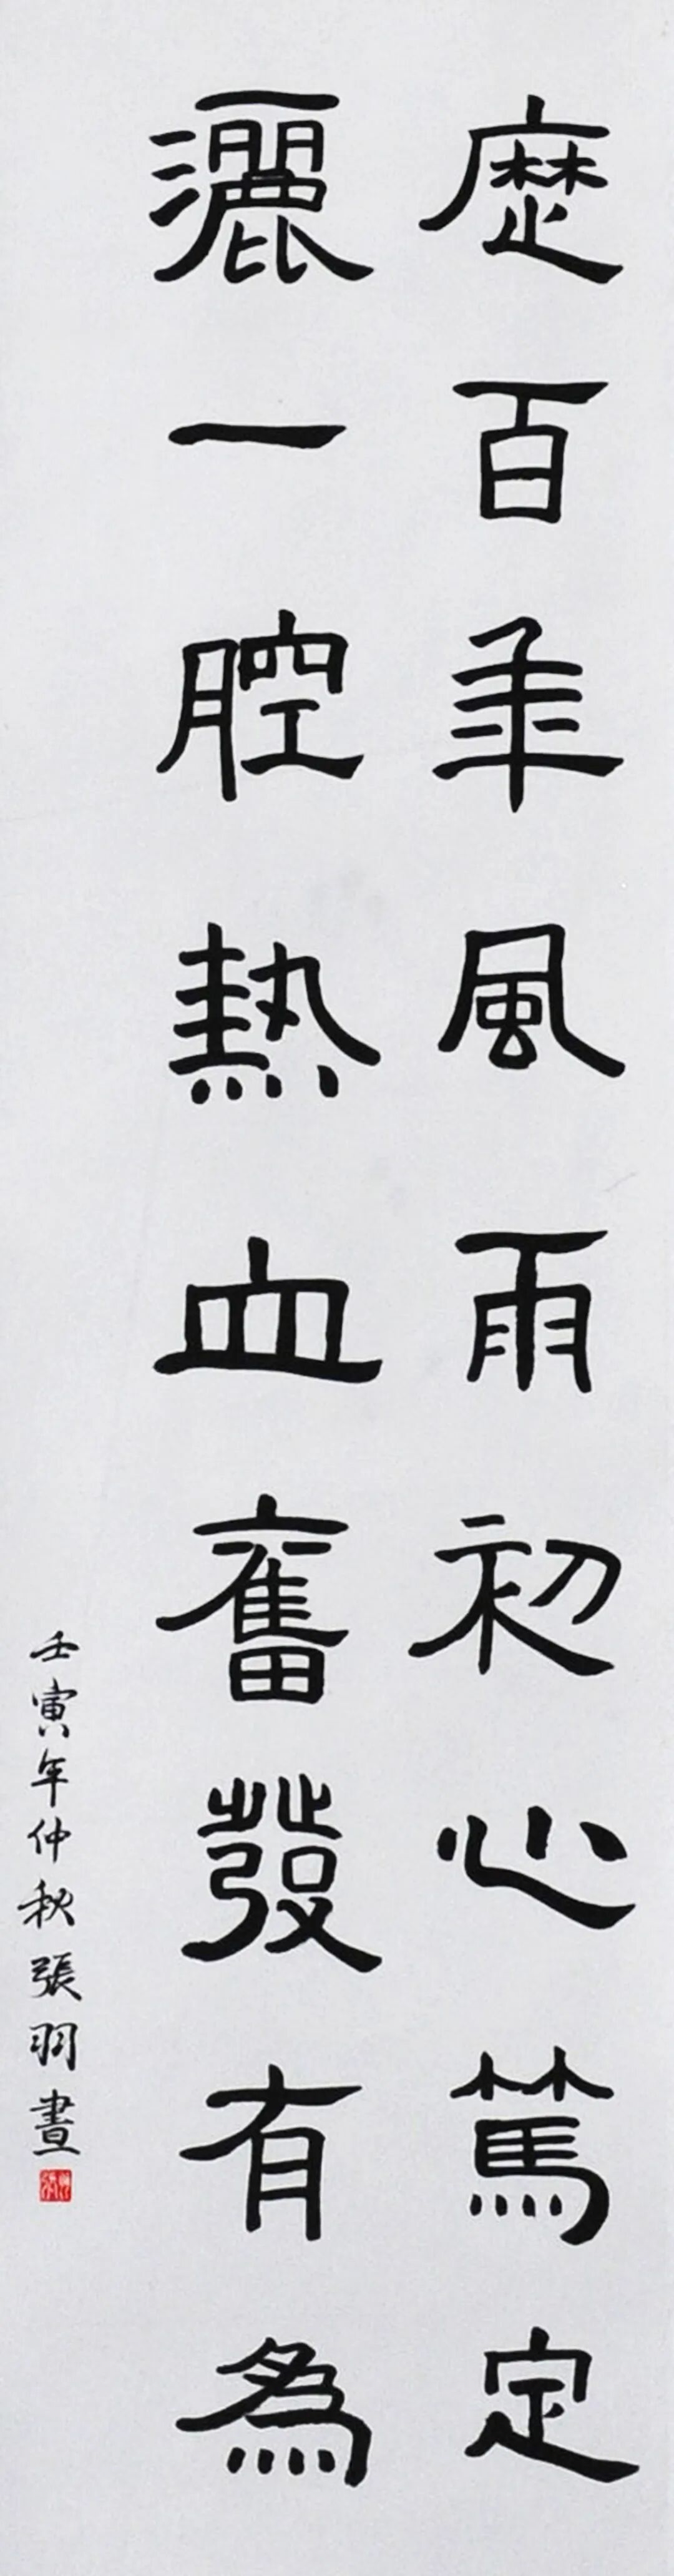 歷百年風雨初心篤定
灑一腔熱血奮發有為
壬寅年仲秋張羽書